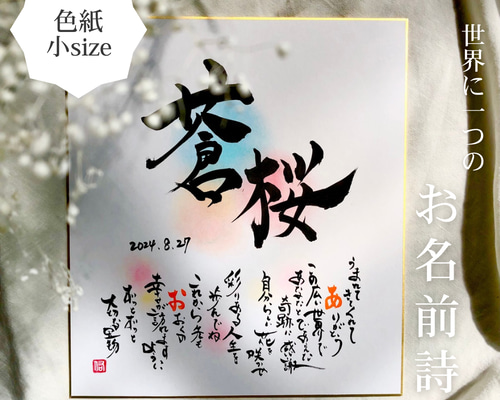 色紙
小size
世界に一つの
お名前詩
蒼桜
2024.8.27
うまれてきてくれて
ありがとう
この広い世界で
あなたとであえた
奇跡に感謝
自分らしい花を咲かせ
彩りある人生を
歩んでね
これから先も
おおくの
幸せが訪れますように
ずっとずっと
大切な宝物